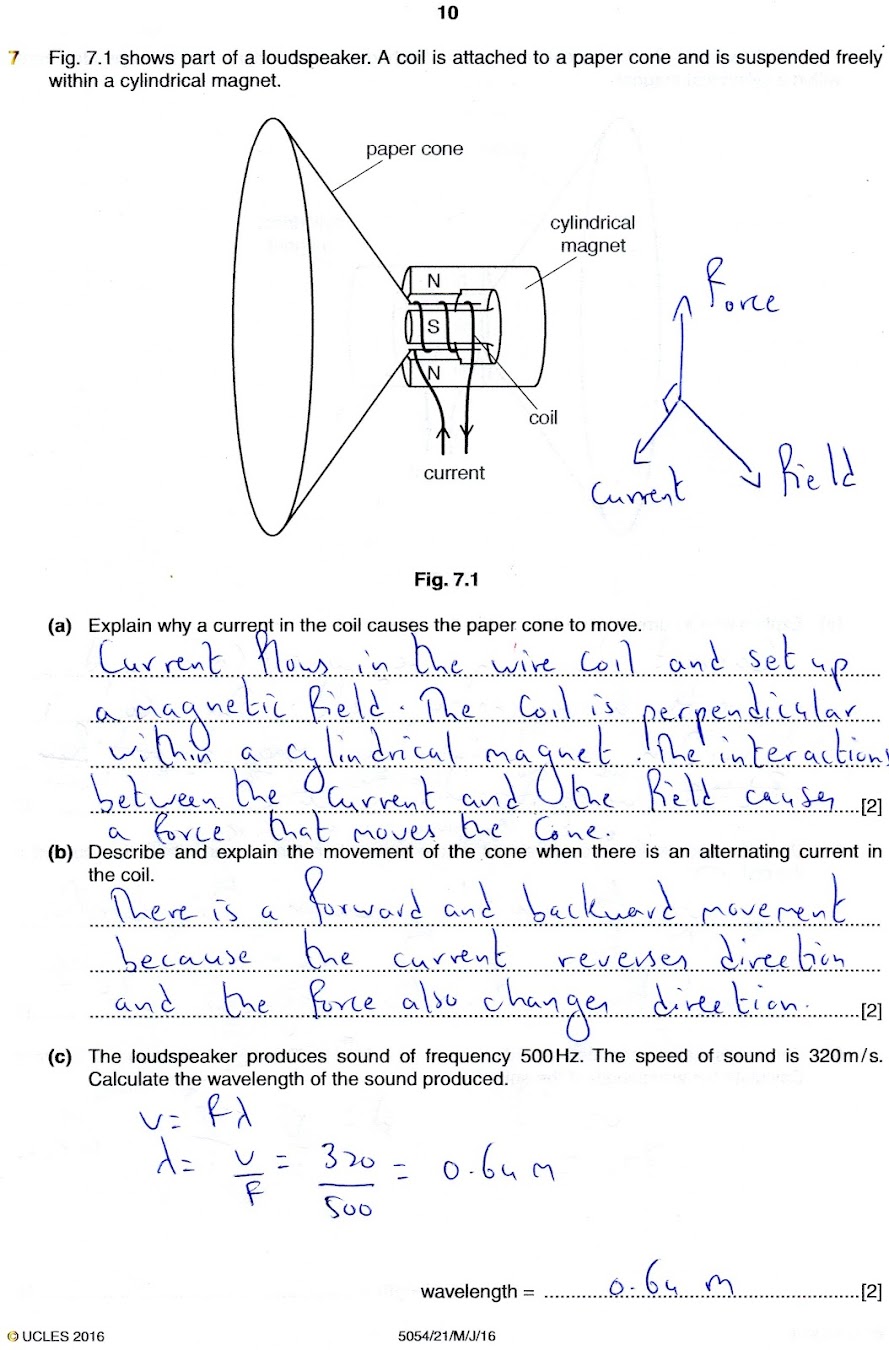 10
7 Fig. 7.1 shows part of a loudspeaker. A coil is attached to a paper cone and is suspended freely
within a cylindrical magnet.
paper cone
cylindrical
magnet
N
S
N
coil
current
Force
Current
Field
Fig. 7.1
(a) Explain why a current in the coil causes the paper cone to move.
Current flows in the wire coil and set up
a magnetic field. The coil is perpendicular
within a cylindrical magnet. The interactions
between the current and the field causes [2]
a force that moves the cone.
(b) Describe and explain the movement of the cone when there is an alternating current in
the coil.
There is a forward and backward movement
because the current reverses direction
and the force also changes direction. [2]
(c) The loudspeaker produces sound of frequency 500 Hz. The speed of sound is 320 m/s.
Calculate the wavelength of the sound produced.
v = fλ
λ = v/f = 320/500 = 0.64 m
wavelength = 0.64 m [2]
© UCLES 2016 5054/21/M/J/16